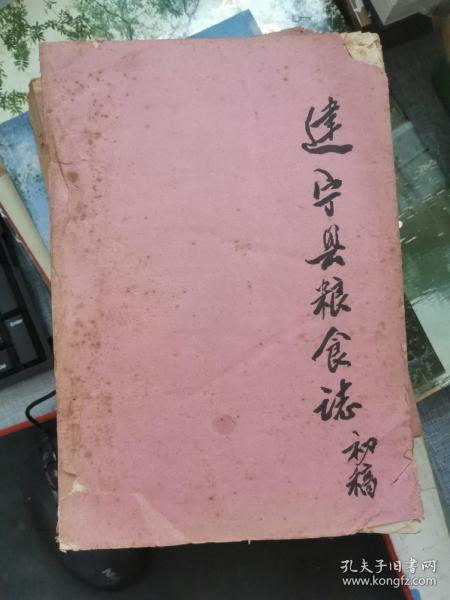 建宁县粮食誌
初稿
孔夫子旧书网
www.kongfz.com